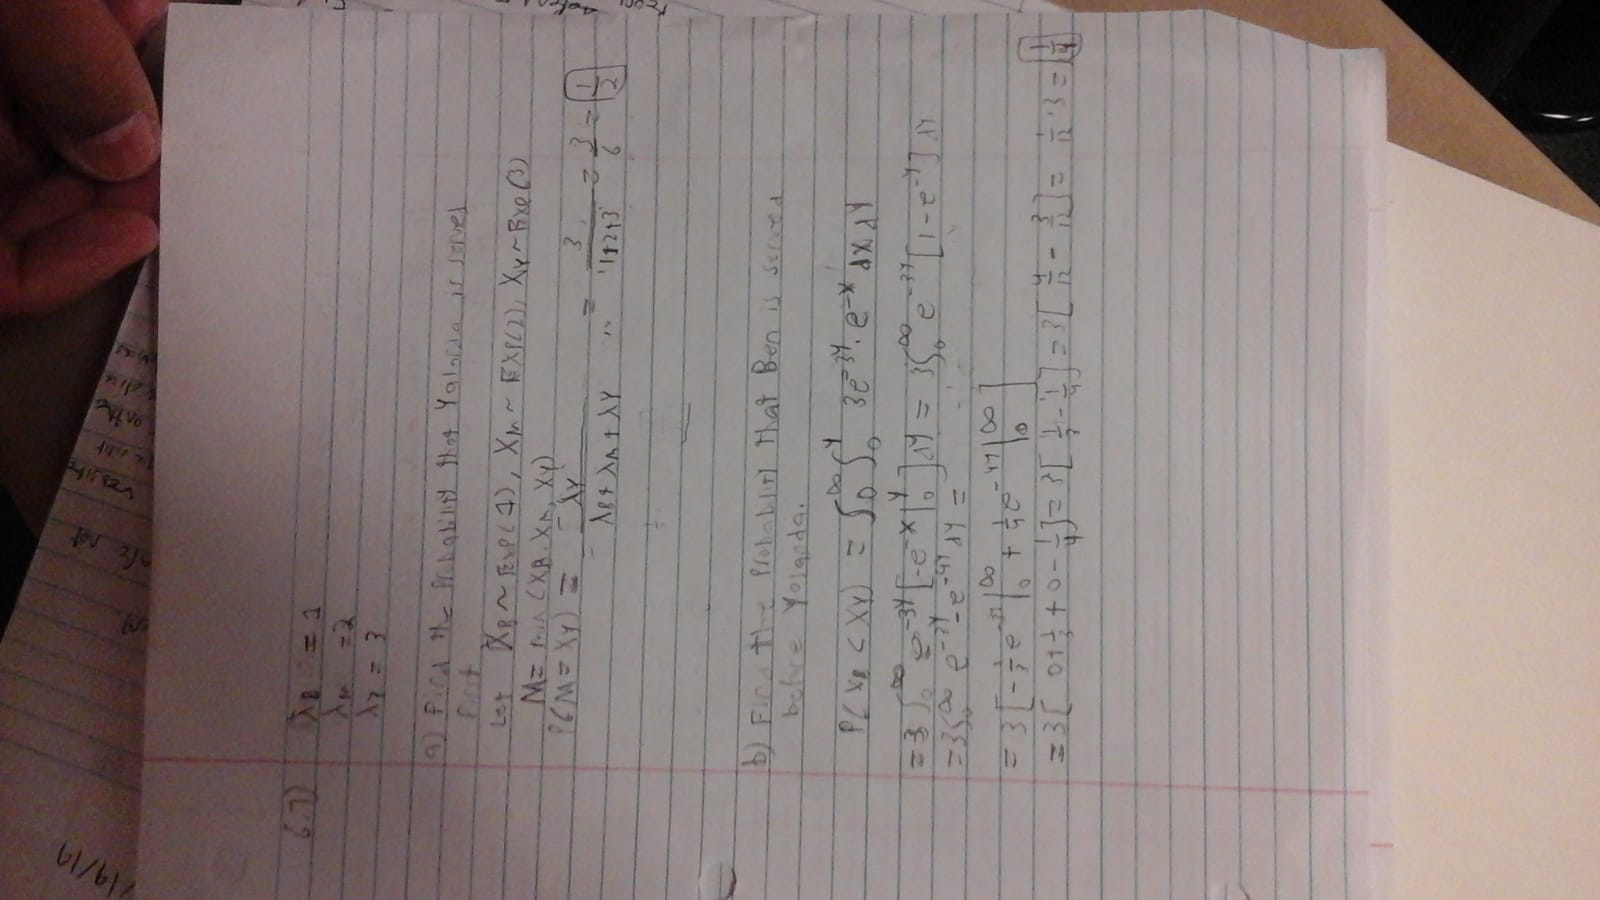 /19/19
for
age not
6.7) λB = 1
λM = 2
λY = 3
a) Find the Probability that Yolanda is served
First
Let XB ~ Exp(1), XM ~ EXP(2), XY ~ Exp(3)
M = min (XB, XM, XY)
P(M = XY) = λY / (λB + λM + λY) = 3 / (1+2+3) = 3/6 = 1/2
b) Find the Probability that Ben is served
before Yolanda.
P(XB < XY) = ∫₀^∞ ∫₀^y 3e^-3y · e^-x dx dy
= 3 ∫₀^∞ e^-3y [-e^-x |₀^y] dy = 3∫₀^∞ e^-3y [1 - e^-y] dy
= 3∫₀^∞ e^-3y - e^-4y dy =
= 3 [-1/3 e^-3y |₀^∞ + 1/4 e^-4y |₀^∞]
= 3[ 0+1/3 + 0 - 1/4] = 3[1/3 - 1/4] = 3[4/12 - 3/12] = 1/12 · 3 = 1/4